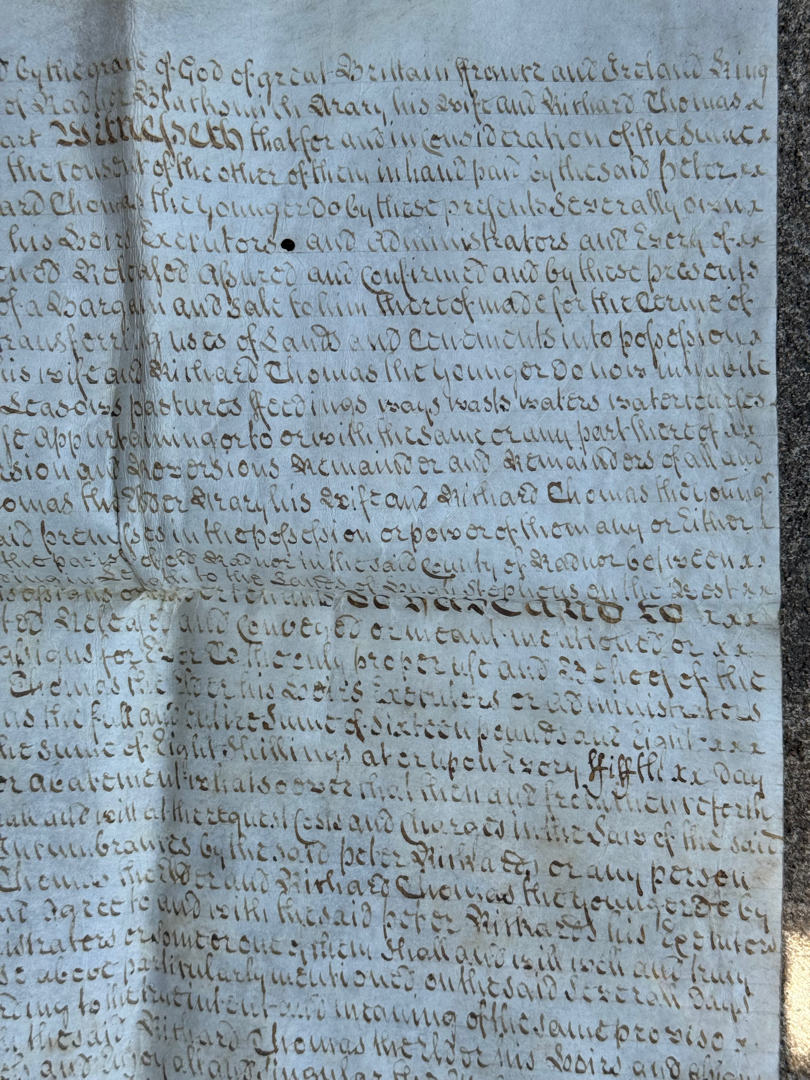 by the grace of God of great Brittain ffrance and Ireland King
of Radnor Blacksmith Mary his Wife and Richard Thomas x
part Witnesseth that for and in Consideration of the Sume x
the consent of the other of them in hand paid by the said Peter xx
ard Thomas the younger do by these presents Severally own x
his Heirs Executors and Administrators and Every of xx
ened Released Assured and Confirmed and by these presents
of a Bargain and Sale to him thereof made for the Terme of
transferring uses of Lands and Tenements into possession x
his wife and Richard Thomas the younger do now inhabite
Leasows pastures ffeedings ways wasts waters watercourses
appurtaining or to or with the same or any part thereof xx
rsion and Reversions Remainder and Remainders of all and
homas the Elder Mary his Wife and Richard Thomas the youngr
said premisses in the possession or power of them any or Either
the parish of old Radnor in the said County of Radnor between xx
to the Lands of Stephens on the West xx
To have and to xxx
ted Released and Conveyed or meant mentioned or xx
assigns for Ever To the only proper use and Behoof of the
Thomas the Elder his Heirs Executors or administrators
the full and entire Sume of Sixteen pounds and Eight xxx
he Sume of Eight Shillings at or upon Every ffiffth xx Day
or abatement whatsoever that then and from thenceforth
shall and will at the request Costs and Charges in the Law of the said
Incumbrances by the said Peter Rickards or any person
Thomas the Elder and Richard Thomas the younger do by
and Agree to and with the said Peter Rickards his Executors
istrators or some or one of them Shall and will well and truly
above particularly mentioned on the said Severall Days
rding to the true intent and meaning of the same proviso x
the said Richard Thomas the Elder his Heirs and assigns
and all and Singular the